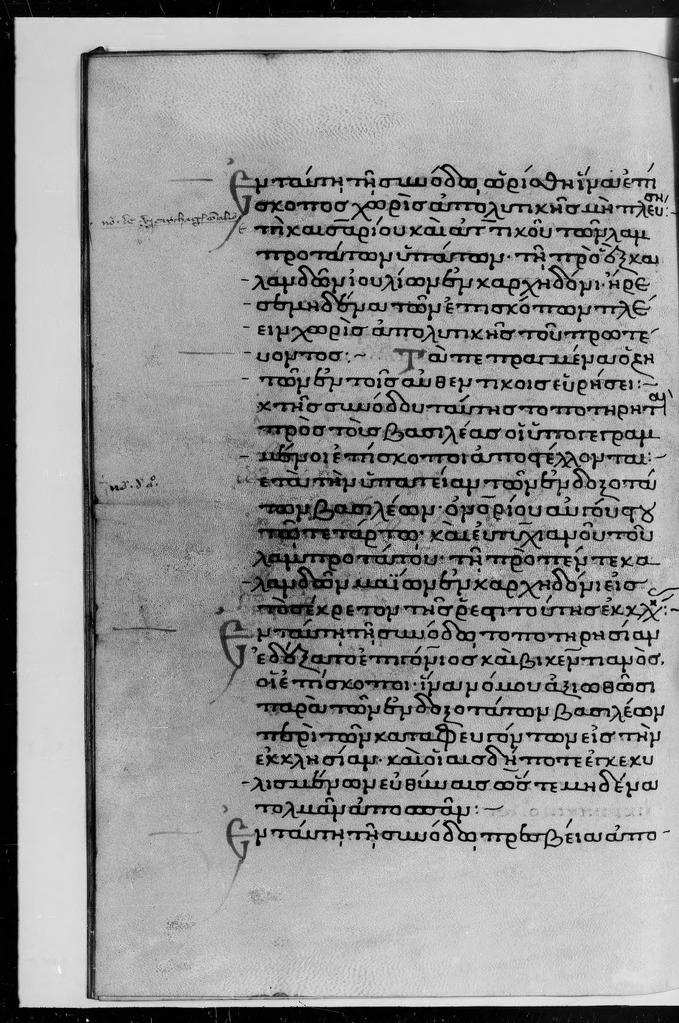 Ἐν ταύτῃ τῇ συνόδῳ ὡρίσθη ἵνα ἐπί
σκοπος χωρὶς ἀπολυτικῆς μὴ πλεύσῃ:-
τῇ καισαρίου καὶ ἀττικοῦ τῶν λαμ
προτάτων ὑπάτων· τῇ πρὸ ὀξ κα
λανδῶν ἰουλίων ἐν καρχηδόνι· ἤρε
σεν μηδένα τῶν ἐπισκόπων πλέ
ειν χωρὶς ἀπολυτικῆς τοῦ πρωτε
υοντος:~ Τὰ πεπραγμένα ὁ ζη
τῶν ἐν τοῖς αὐθεντικοῖς εὑρήσει:~
κ τῆς συνόδου ταύτης τοποτηρηταὶ
πρὸς τοὺς βασιλέας οἱ ὑπογεγραμ
μένοι ἐπίσκοποι ἀποστέλλονται:-
ετὰ τὴν ὑπατείαν τῶν ἐνδοξοτά
των βασιλέων· ὀνορίου αὐγούστου
τῷ τετάρτῳ· καὶ εὐτυχιανοῦ τοῦ
λαμπροτάτου· τῇ πρὸ πέντε κα
λανδῶν μαΐων ἐν καρχηδόνι εἰς
τὸ σέκρετον τῆς ῥεστιτούτης ἐκκλ:-
Ἐν ταύτῃ τῇ συνόδῳ τοποτηρησίαν
ἐδέξαντο ἐπιγόνιος καὶ βικεντιανὸς,
οἱ ἐπίσκοποι· ἵνα νόμου ἀξιωθῶσι
παρὰ τῶν ἐνδοξοτάτων βασιλέων
περὶ τῶν καταφευγόντων εἰς τὴν
ἐκκλησίαν· καὶ οἱαισδήποτε ἐγκεκυ
λισμένων εὐθύναις ὥστε μηδένα
τολμᾶν ἀποσπᾶν:~
Ἐν ταύτῃ τῇ συνόδῳ πρεσβεία ἀπο-